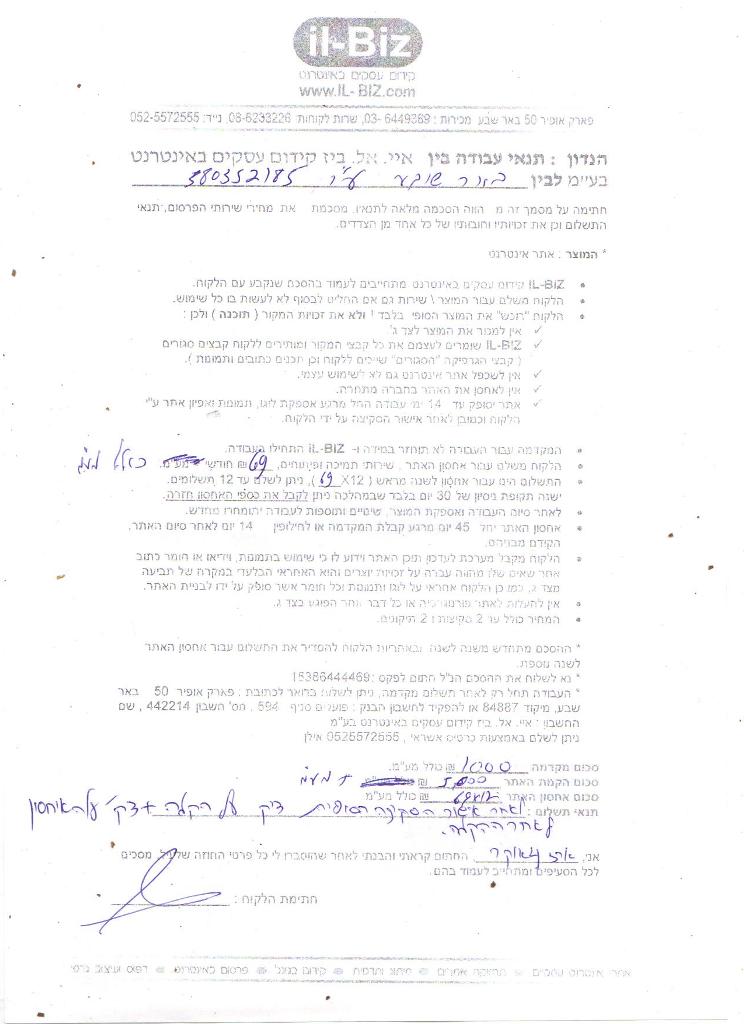 il-Biz
קידום עסקים באינטרנט
www.IL-BIZ.com
פארק אופיר 50 באר שבע מכירות : 03-6449369, שרות לקוחות: 08-6233226, נייד: 052-5572555
הנדון : תנאי עבודה בין איי. אל. ביז קידום עסקים באינטרנט
בע"מ לבין באר שובע ע"ר 580352185
חתימה על מסמך זה מהווה הסכמה מלאה לתנאיו, מסכמת את מחירי שירותי הפרסום, תנאי
התשלום וכן את זכויותיו וחובותיו של כל אחד מן הצדדים.
* המוצר : אתר אינטרנט
IL-BIZ קידום עסקים באינטרנט מתחייבים לעמוד בהסכם שנקבע עם הלקוח.
הלקוח משלם עבור המוצר \ שירות גם אם החליט לבסוף לא לעשות בו כל שימוש.
הלקוח "רוכש" את המוצר הסופי בלבד ! ולא את זכויות המקור ( תוכנה ) ולכן :
אין למכור את המוצר לצד ג'.
IL-BIZ שומרים לעצמם את כל קבצי המקור ומותירים ללקוח קבצים סגורים
( קבצי הגרפיקה "הסגורים" שייכים ללקוח וכן תכנים כתובים ותמונות ).
אין לשכפל אתר אינטרנט גם לא לשימוש עצמי.
אין לאחסן את האתר בחברה מתחרה.
אתר יסופק עד 14 ימי עבודה החל מרגע אספקת לוגו, תמונות ואפיון אתר ע"י
הלקוח וכמובן לאחר אישור הסקיצה על ידי הלקוח.
המקדמה עבור העבודה לא תוחזר במידה ו- IL-BIZ התחילו העבודה.
הלקוח משלם עבור אחסון האתר, שירותי תמיכה ופיתוחים, 69 ₪ חודשי מע"מ. כולל מע"מ
התשלום הינו עבור אחסון לשנה מראש ( 69 X12 ), ניתן לשלם עד 12 תשלומים.
ישנה תקופת ניסיון של 30 יום בלבד שבמהלכה ניתן לקבל את כספי האחסון חזרה.
לאחר סיום העבודה ואספקת המוצר, שינויים ותוספות לעבודה יתומחרו מחדש.
אחסון האתר יחל 45 יום מרגע קבלת המקדמה או לחילופין 14 יום לאחר סיום האתר,
הקודם מבניהם.
הלקוח מקבל מערכת לעדכון תוכן האתר וידוע לו כי שימוש בתמונות, וידיאו או חומר כתוב
אחר שאינם שלו מהווה עברה על זכויות יוצרים והוא האחראי הבלעדי במקרה של תביעה
מצד ג', כמו כן הלקוח אחראי על לוגו ותמונות וכל חומר אשר סופק על ידו לבניית האתר.
אין להעלות לאתר פורנוגרפיה או כל דבר אחר הפוגע בצד ג.
המחיר כולל עד 2 סקיצות ו 2 תיקונים.
* ההסכם מתחדש משנה לשנה ובאחריות הלקוח להסדיר את התשלום עבור אחסון האתר
לשנה נוספת.
* נא לשלוח את ההסכם הנ"ל חתום לפקס : 15386444469
* העבודה תחל רק לאחר תשלום מקדמה, ניתן לשלוח בדואר לכתובת : פארק אופיר 50 באר
שבע, מיקוד 84887 או להפקיד לחשבון הבנק : פועלים סניף 594, מס' חשבון 442214, שם
החשבון : איי. אל. ביז קידום עסקים באינטרנט בע"מ
ניתן לשלם באמצעות כרטיס אשראי, 0525572555 אילן
סכום מקדמה 1000 ₪ כולל מע"מ.
סכום הקמת האתר 5,000 ₪ + מע"מ
סכום אחסון האתר 69X12 ₪ כולל מע"מ.
תנאי תשלום : לאחר אישור הסקיצה הסופית צ'ק על הקמה + צ'ק על האיחסון
לאחר ההקמה.
אני, החתום קראתי והבנתי לאחר שהוסברו לי כל פרטי החוזה שלעיל, מסכים
לכל הסעיפים ומתחייב לעמוד בהם.
חתימת הלקוח :
אתרי אינטרנט עסקיים תחזוקת אתרים מיתוג ותדמית קידום בגוגל פרסום באינטרנט דפוס ועיצוב גרפי